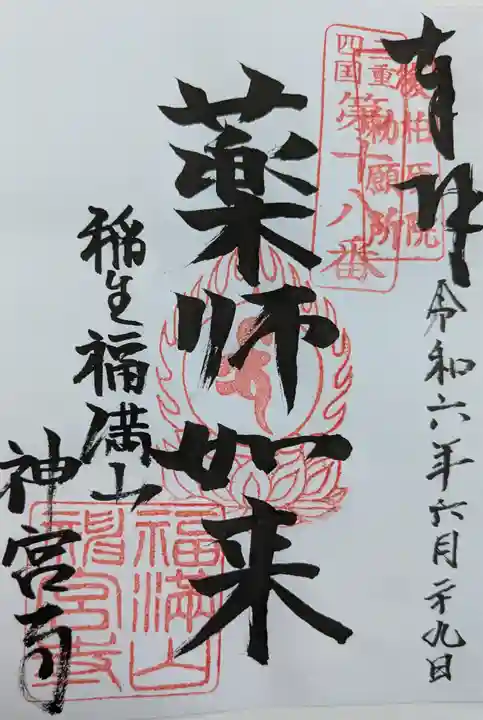 奉拝
令和六年六月二十九日
薬師如来
稲生福満山
神宮寺
四国第十八番
三重
勅願所
福満山
神宮寺